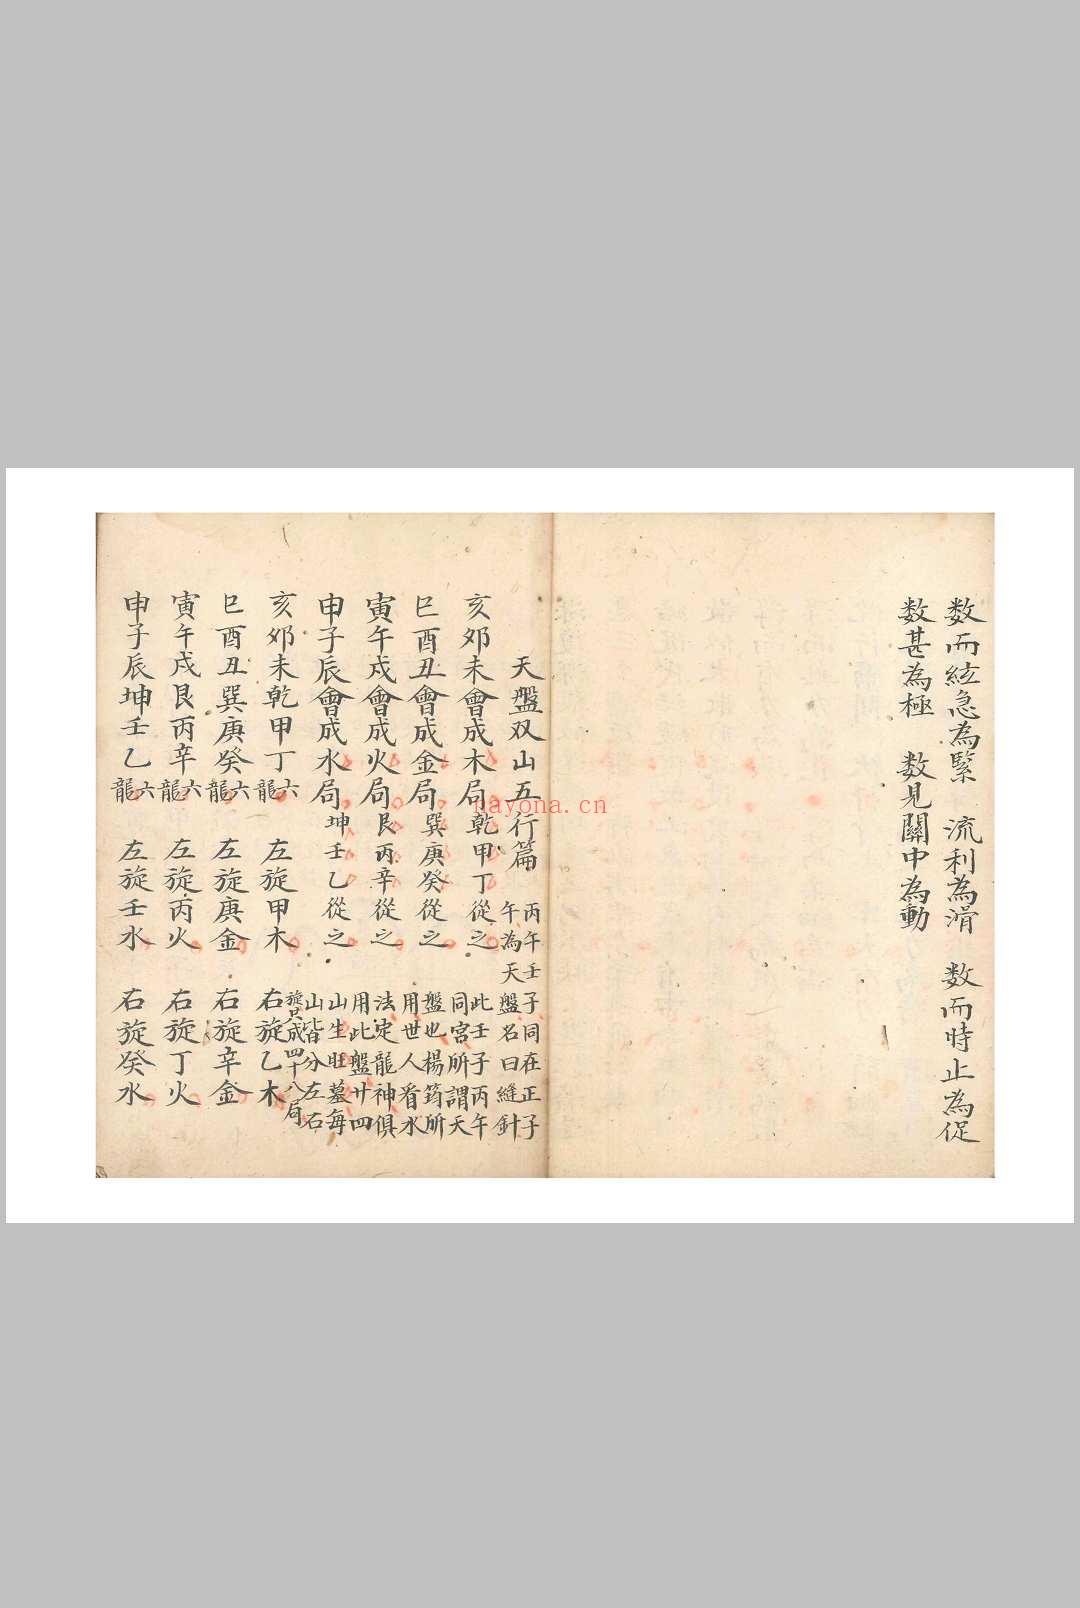 数而絃急為緊　流利為滑　数而時止為促
数甚為極　数見關中為動
天盤双山五行篇
丙午壬子同在正子
午為天盤名曰縫針
亥夘未會成木局乾甲丁從之
此壬子丙午
同宮所謂天
巳酉丑會成金局巽庚癸從之
盤也楊筠所
用世人看水
寅午戍會成火局艮丙辛從之
法定龍神俱
用此盤廿四
申子辰會成水局坤壬乙從之
山生旺墓每
山皆分左右
旋共成四十八局
亥夘未乾甲丁六龍　左旋甲木　右旋乙木
巳酉丑巽庚癸六龍　左旋庚金　右旋辛金
寅午戍艮丙辛六龍　左旋丙火　右旋丁火
申子辰坤壬乙六龍　左旋壬水　右旋癸水
nayona.cn